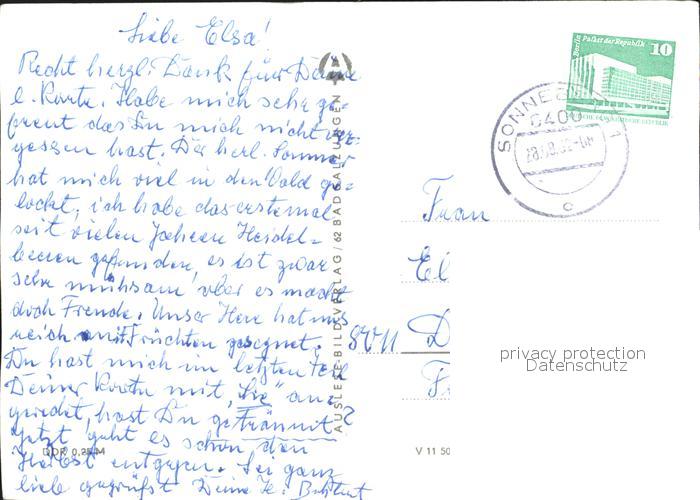 Liebe Elsa!
Recht herzl. Dank für Deine
l. Karte. Habe mich sehr ge-
freut das Du mich nicht ver-
gessen hast. Der herl. Sommer
hat mich viel in den Wald ge-
lockt, ich habe das erstemal
seit vielen Jahren Heidel=
beeren gefunden, es ist zwar
sehr mühsam aber es macht
doch Freude. Unser Herr hat uns
reich mit Früchten gesegnet.
Du hast mich im letzten Teil
Deiner Karte mit „Sie" ange
redet, hast Du geträumt?
Jetzt geht es schon dem
Herbst entgegen. Sei ganz
lieb gegrüßt Deine
AUSLESE-BILD-VERLAG / 62 BAD SALZUNGEN
DDR 0,25 M
V 11 50
Berlin Palast der Republik
10
DEUTSCHE DEMOKRATISCHE REPUBLIK
SONNEBERG 1
6400
c
Frau
El
8011 D
F
privacy protection
Datenschutz